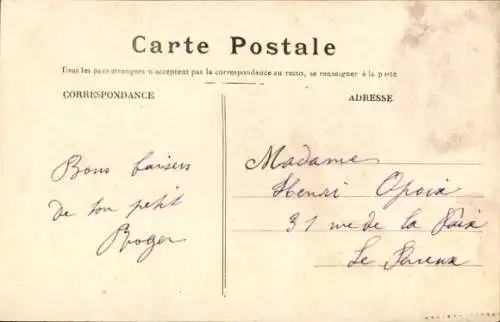 Carte Postale
Tous les pays étrangers n'acceptent pas la correspondance au recto, se renseigner à la poste
CORRESPONDANCE
ADRESSE
Bons baisers
de ton petit
Roger
Madame
Henri Opoix
31 rue de la Paix
Le Perreux